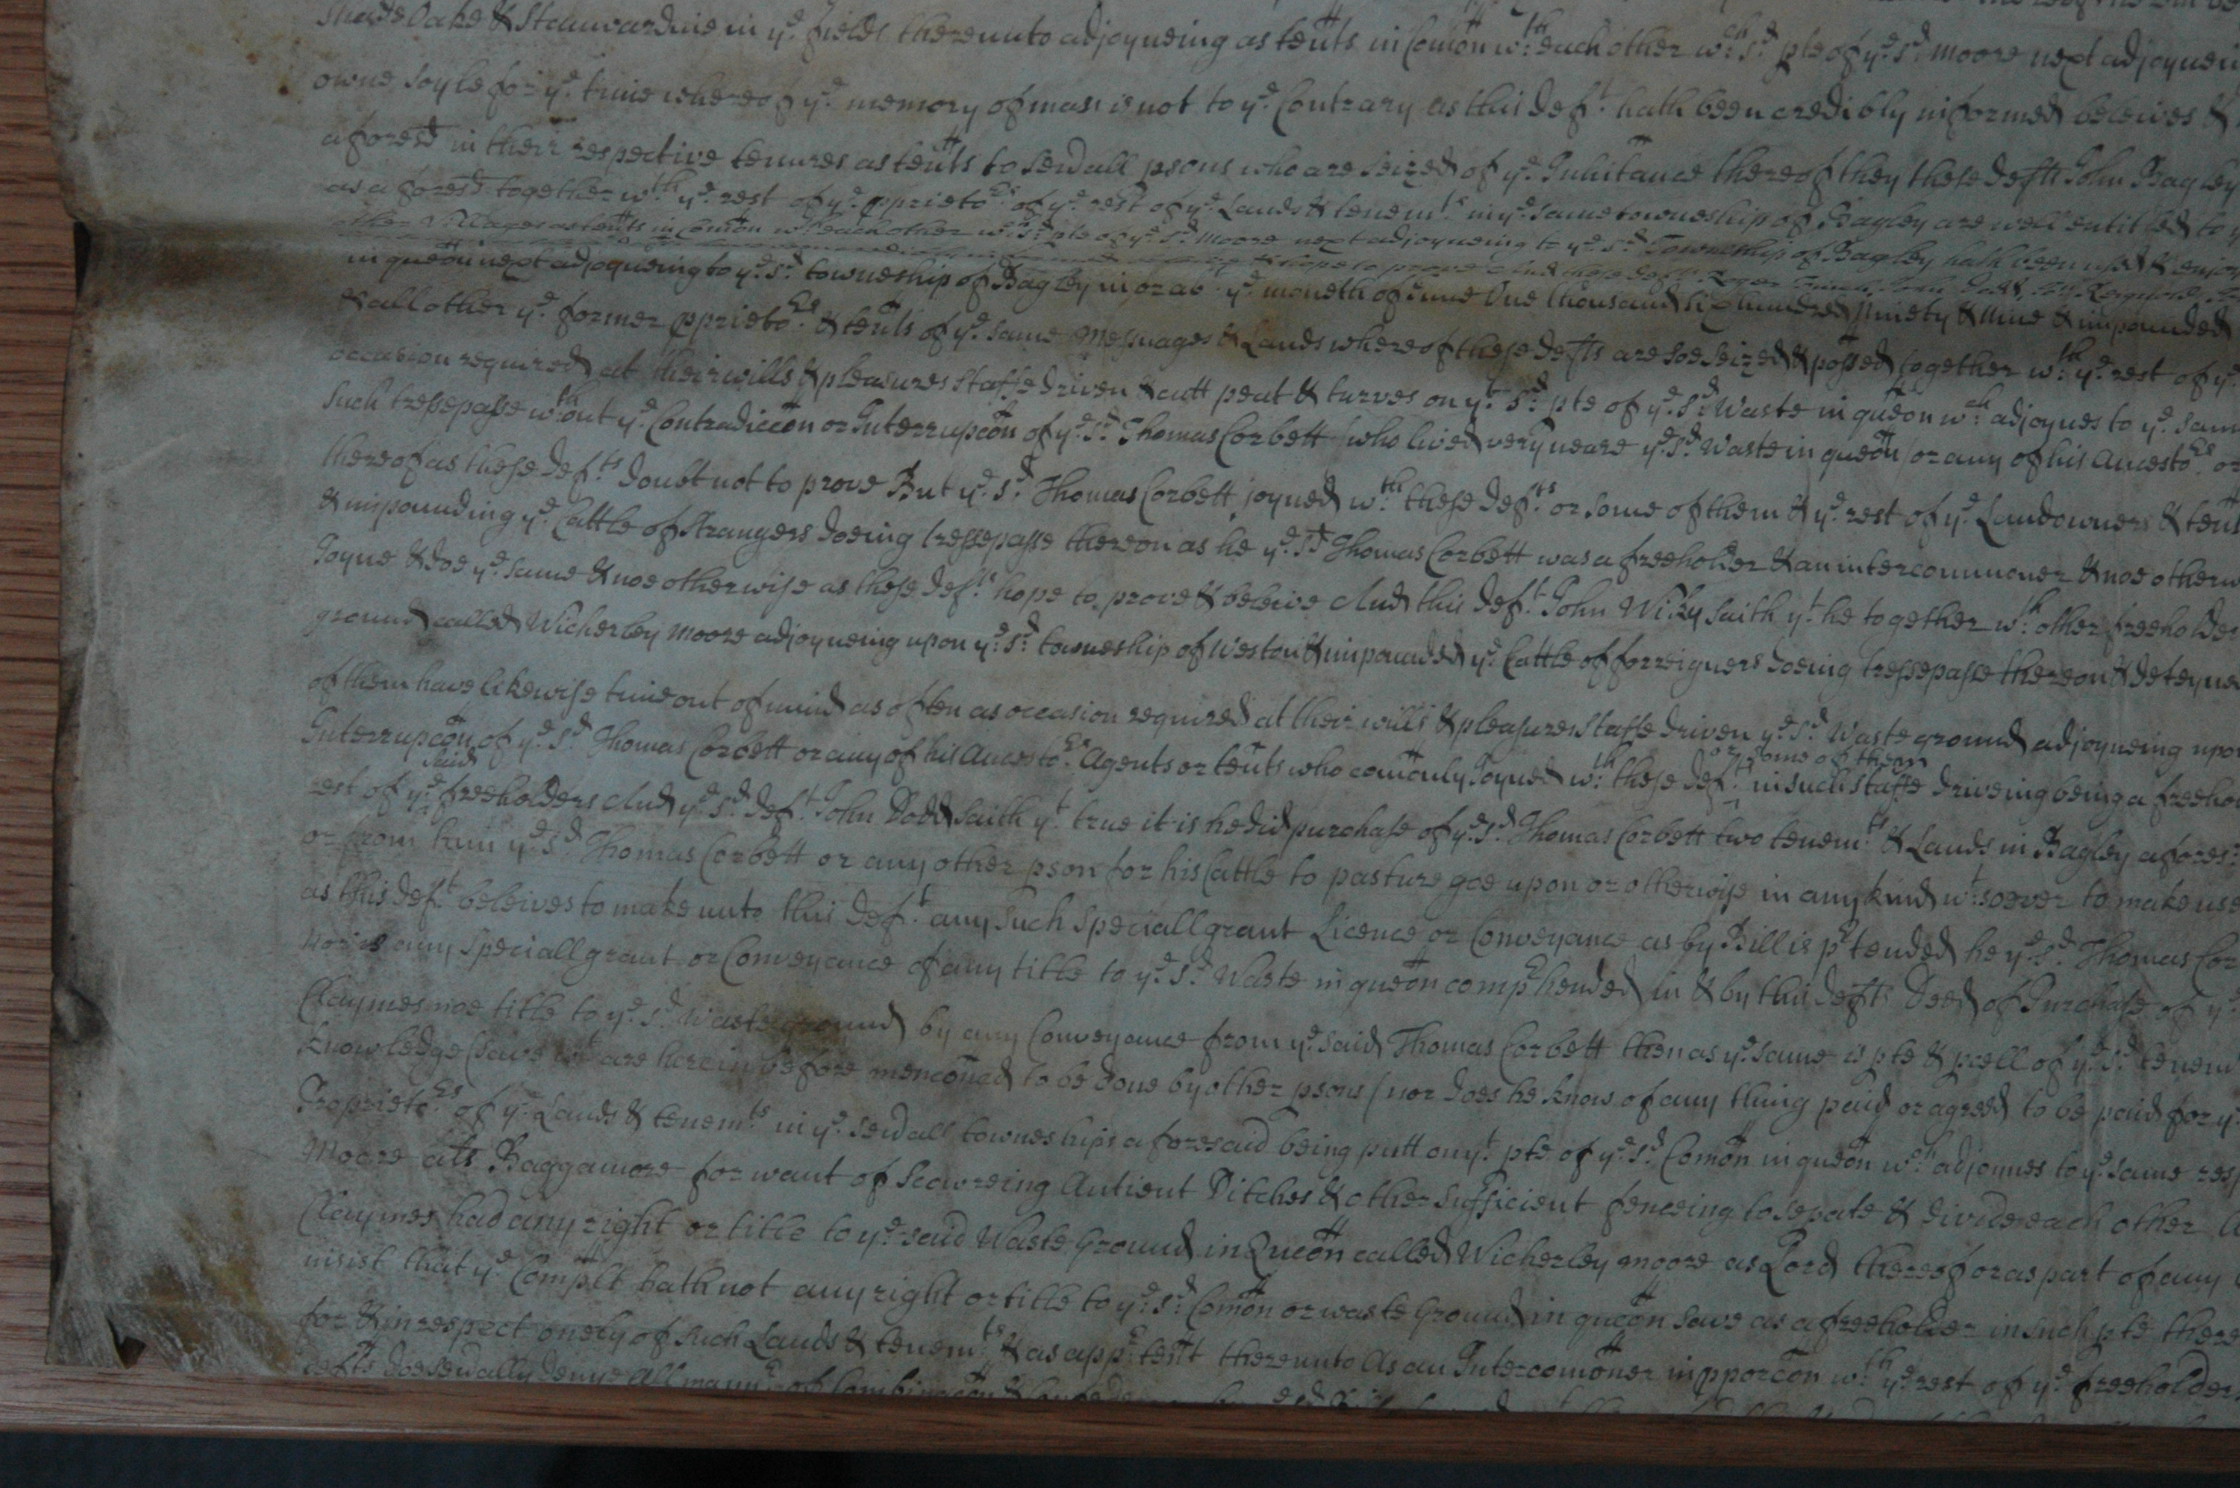 Oake & Stanwardine in ye. fields thereunto adjoyneing as teñts in Com̃on wth. each other wch. sd. pte of ye. sd. Moore next adjoyne
owne soyle for ye. time whereof ye. memory of man is not to ye. Contrary as this deft. hath been credibly informed beleives &
aforesd. in their respective tenures as teñts to sev̄all psons who are seized of ye. Inhītance thereof they these defts John Bagley
as aforesd. together wth. ye. rest of ye. pprietors. of ye. rest of ye. Lands & tenemts. in ye. same towneship of Bagley are well entitled to
other Villages as teñts in Com̃on wth. each other wch. sd. pte of ye. sd. Moore next adjoyneing to ye. sd. Towneship of Bagley hath been used & enjoy
in queõn next adjoyneing to ye. sd. towneship of Bagley in or ab. ye. moneth of June One thousand six hundred Ninety & Nine & impounded
& all other ye. former pprietors. & teñts of ye. same Messuages & Lands whereof these defts are soe seized & possed together wth. ye. rest of ye
occasion required at their wills & pleasures staffe driven & cutt peat & turves on yt. sd. pte of ye. sd. Waste in queõn wch. adjoynes to ye. same
such tressepasse wthout ye. Contradiccõn or Interrupcõn of ye. sd. Thomas Corbett (who lived very neare ye. sd. Waste in queõn) or any of his Ancestors. or
thereof as these defts. doubt not to prove But ye. sd. Thomas Corbett joyned wth. these defts. or some of them & ye. rest of ye. Landowners & teñt
& impounding ye. Cattle of Strangers doeing tressepasse thereon as he ye. sd. Thomas Corbett was a freeholder & an intercommoner & noe otherw
Joyne & doe ye. same & noe otherwise as these defts. hope to prove & beleive And this deft. John Wixly saith yt. he together wth. other freeholde
ground called Wicherley Moore adjoyneing upon ye. sd. towneship of Weston & impounded ye. Cattle of forreigners doeing tressepasse thereon & deteyne
of them have likewise time out of mind as often as occasion required at their wills & pleasures staffe driven ye. sd. Waste ground adjoyneing upon
Interrupcõn of ye. sd. Thomas Corbett or any of his Ancestors. Agents or teñts who com̃only Joyned wth. these defts. or some of them in such staffe driveing being a freeho
rest of ye. said freeholders And ye. sd. deft. John Dodd saith yt. true it is he did purchase of ye. sd. Thomas Corbett two tenemts. & Lands in Bagley aforesd.
or from him ye. sd. Thomas Corbett or any other pson for his Cattle to pasture goe upon or otherwise in any kind wt.soever to make use
as this deft. beleives to make unto this deft. any such speciall grant Licence or Conveyance as by Bill is prtended he ye. sd. Thomas Cor
Nor is any speciall grant or Conveyance of any title to ye. sd. Waste in queõn comprhended in & by this defts Deed of Purchase of ye
Claymes noe title to ye. sd. Waste ground by any Conveyance from ye. said Thomas Corbett then as ye. same is pte & pcell of ye. sd. tenem
knowledge (save wt are herein before menc̃oned to be done by other psons) nor does he know of any thing paid or agreed to be paid for y
Proprietors. of ye. Lands & tenemts. in ye. sev̄all towneships aforesaid being putt on yt. pte of ye. sd. Com̃on in queõn wch. adjoynes to ye. same res
Moore als Baggamore for want of Scowreing Antient Ditches & other sufficient fenceing to sepate & divide each other
Claymes had any right or title to ye. said Waste Ground in Queõn called Wicherley moore as Lord thereof or as part of any
insist that ye. Complt hath not any right or title to ye. sd. Com̃on or waste Ground in queõn save as a freeholder in such pte there
for & in respect onely of such Lands & tenemts. & as appr.teñt thereunto As an Intercom̃oner in pporcõn wth. ye. rest of ye. freeholder
defts doe sev̄ally denye All mannr. of Combinacõn &